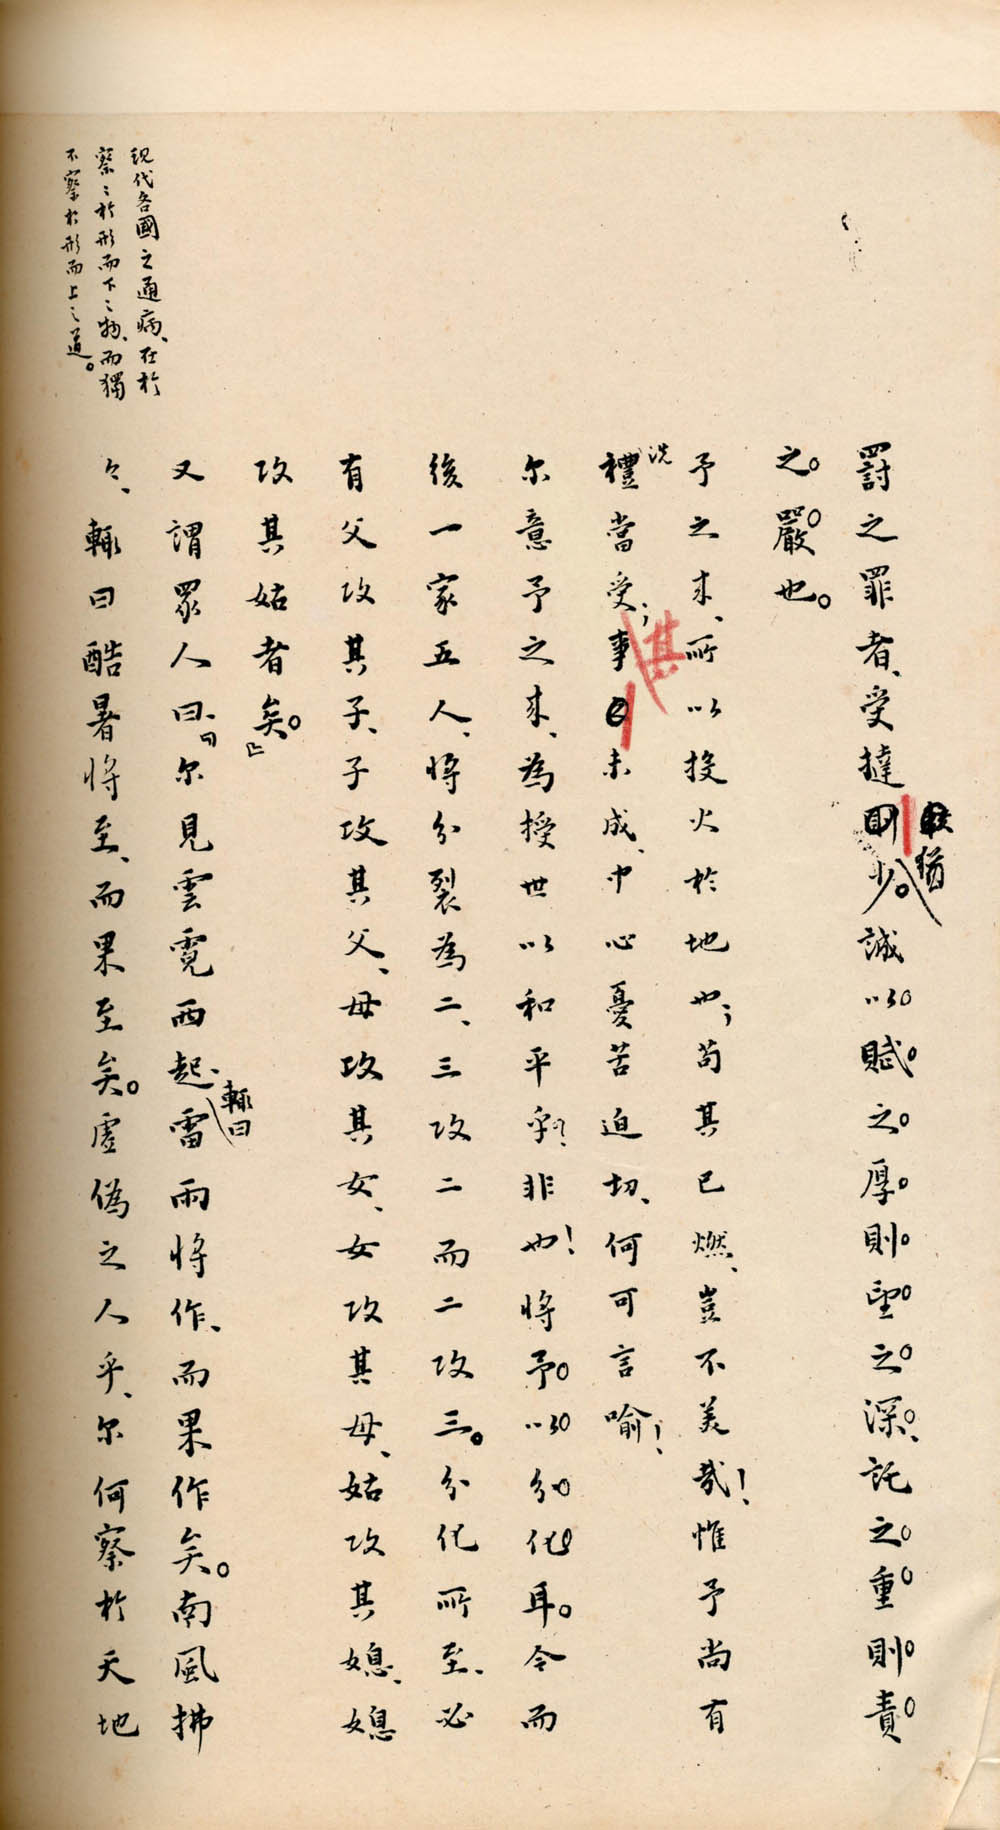 罰之罪者、受撻則少。誠以賦之厚則望之深、託之重則責
猶
之嚴也。
予之來、所以投火於地也；苟其已燃、豈不美哉！惟予尚有
洗
禮當受；事未成、中心憂苦迫切、何可言喻！
其
尔意予之來、為授世以和平乎？非也！將予以分化耳。今而
後一家五人、將分裂為二、三攻二而二攻三。分化所至、必
有父攻其子、子攻其父、母攻其女、女攻其母、姑攻其媳、媳
攻其姑者矣。』
又謂眾人曰、『尔見雲霓西起、雷雨將作、而果作矣。南風拂
輒曰
々、輒曰酷暑將至、而果至矣。虛偽之人乎、尔何察於天地
現代各國之通病、在於
察〻於形而下〻物、而獨
不察於形而上〻道。